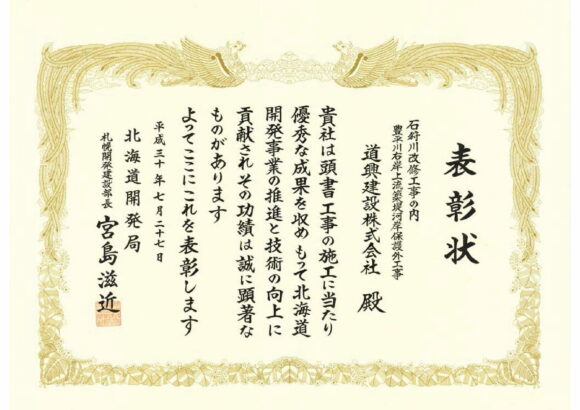 表彰状
石狩川改修工事の内
豊平川右岸上流築堤河岸保護外工事
道興建設株式会社 殿
貴社は頭書工事の施工に当たり
優秀な成果を収めもって北海道
開発事業の推進と技術の向上に
貢献されその功績は誠に顕著な
ものがあります
よってここにこれを表彰します
平成三十年七月二十七日
北海道開発局
札幌開発建設部長 宮島滋近